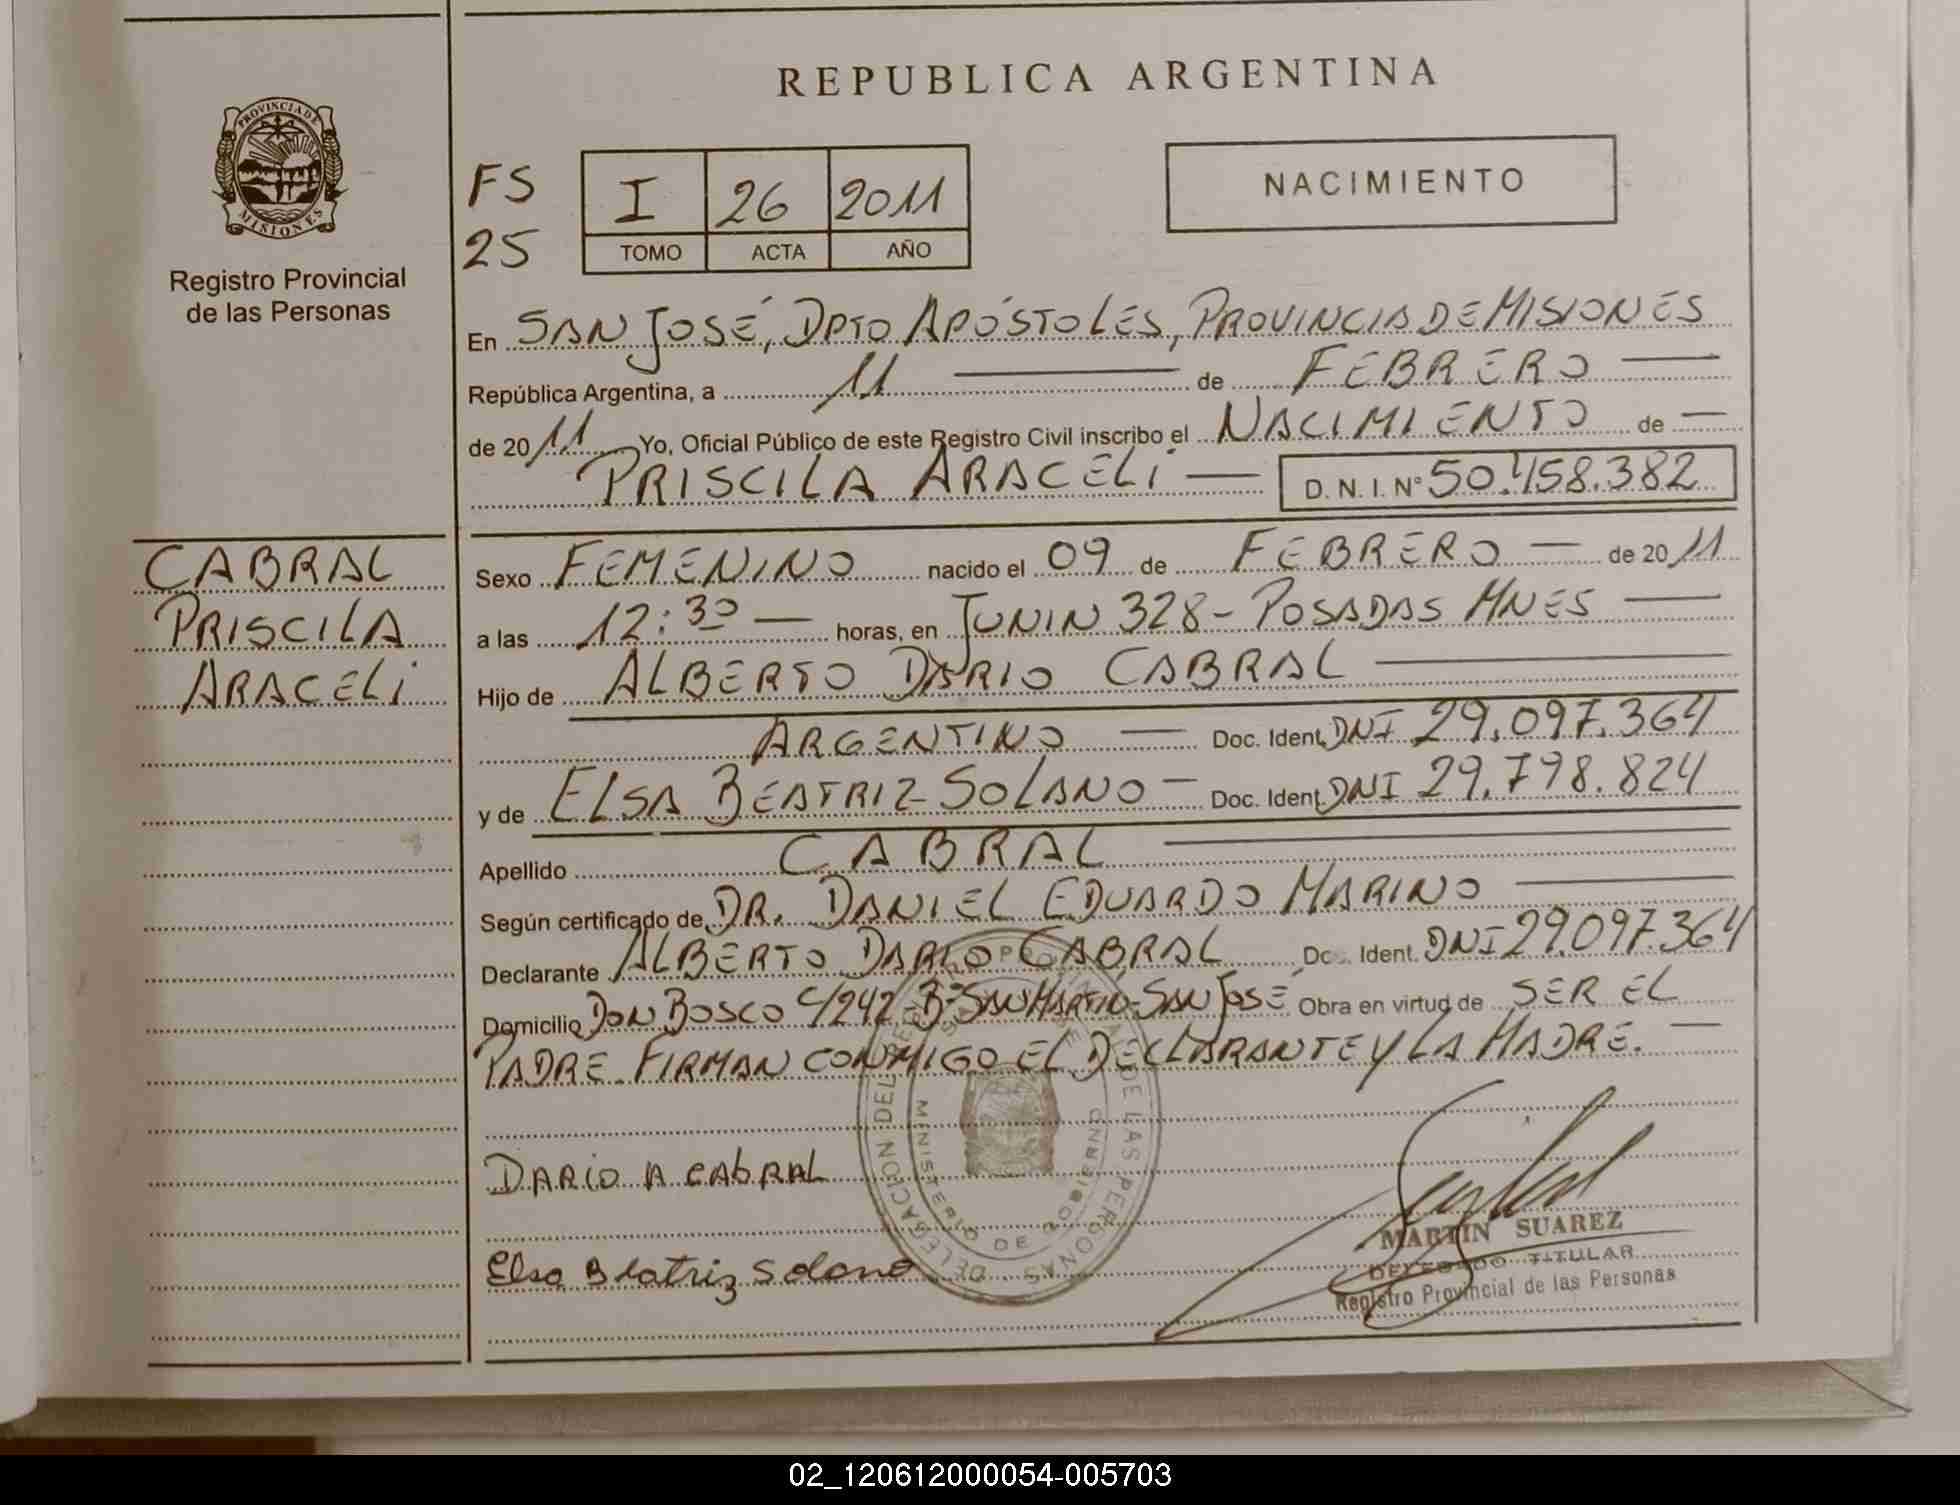 REPUBLICA ARGENTINA
PROVINCIA DE
MISIONES
Registro Provincial
de las Personas
FS
25
I 26 2011
TOMO ACTA AÑO
NACIMIENTO
En SAN JOSÉ, DPTO APÓSTOLES, PROVINCIA DE MISIONES
República Argentina, a 11 de FEBRERO
de 2011 Yo, Oficial Público de este Registro Civil inscribo el NACIMIENTO de
PRISCILA ARACELI D. N. I. Nº 50.458.382
CABRAL
PRISCILA
ARACELI
Sexo FEMENINO nacido el 09 de FEBRERO de 2011
a las 12:30 horas, en JUNIN 328 - POSADAS MNES
Hijo de ALBERTO DARIO CABRAL
ARGENTINO Doc. Ident. DNI 29.097.364
y de ELSA BEATRIZ SOLANO Doc. Ident. DNI 29.798.824
Apellido CABRAL
Según certificado de DR. DANIEL EDUARDO MARINO
Declarante ALBERTO DARIO CABRAL Doc. Ident. DNI 29.097.364
Domicilio DON BOSCO C/242 Bº SAN MARTIN - SAN JOSÉ Obra en virtud de SER EL
PADRE. FIRMAN CONMIGO EL DECLARANTE Y LA MADRE.
DARIO A CABRAL
Elsa Beatriz Solano
DELEGACION DEL DE LAS PERSONAS
MINISTERIO DE GOBIERNO
MARTIN SUAREZ
DELEGADO TITULAR
Registro Provincial de las Personas
02_120612000054-005703